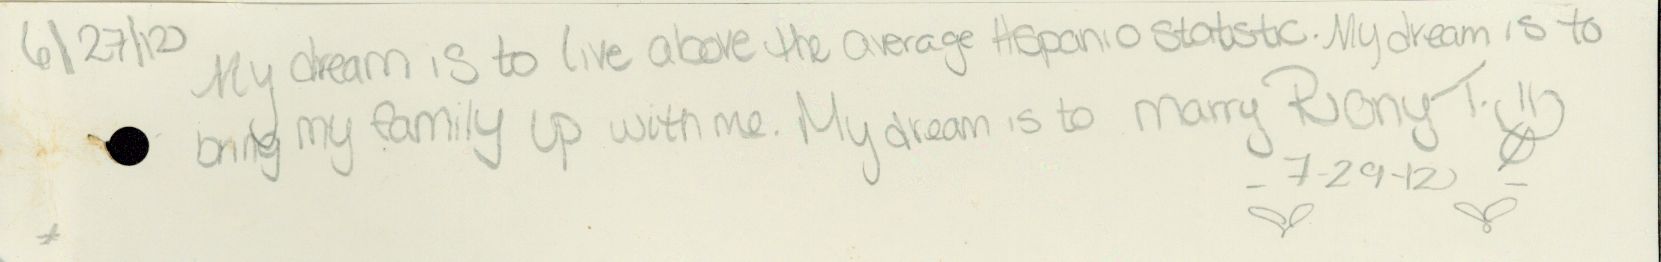 6/27/12
My dream is to live above the average Hispanic statistic. My dream is to
bring my family up with me. My dream is to marry Rony T.
- 7-29-12 -